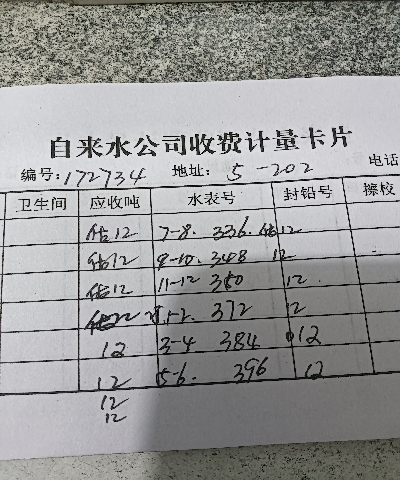 自来水公司收费计量卡片
编号:172734 地址: 5-202 电话
卫生间 应收吨 水表号 封铅号 擦校
估12 7-8. 336. 12
估12 9-10. 348 12
估12 11-12 360 12
1-2. 372 12
12 3-4 384 12
12 5-6. 396 12
12
12